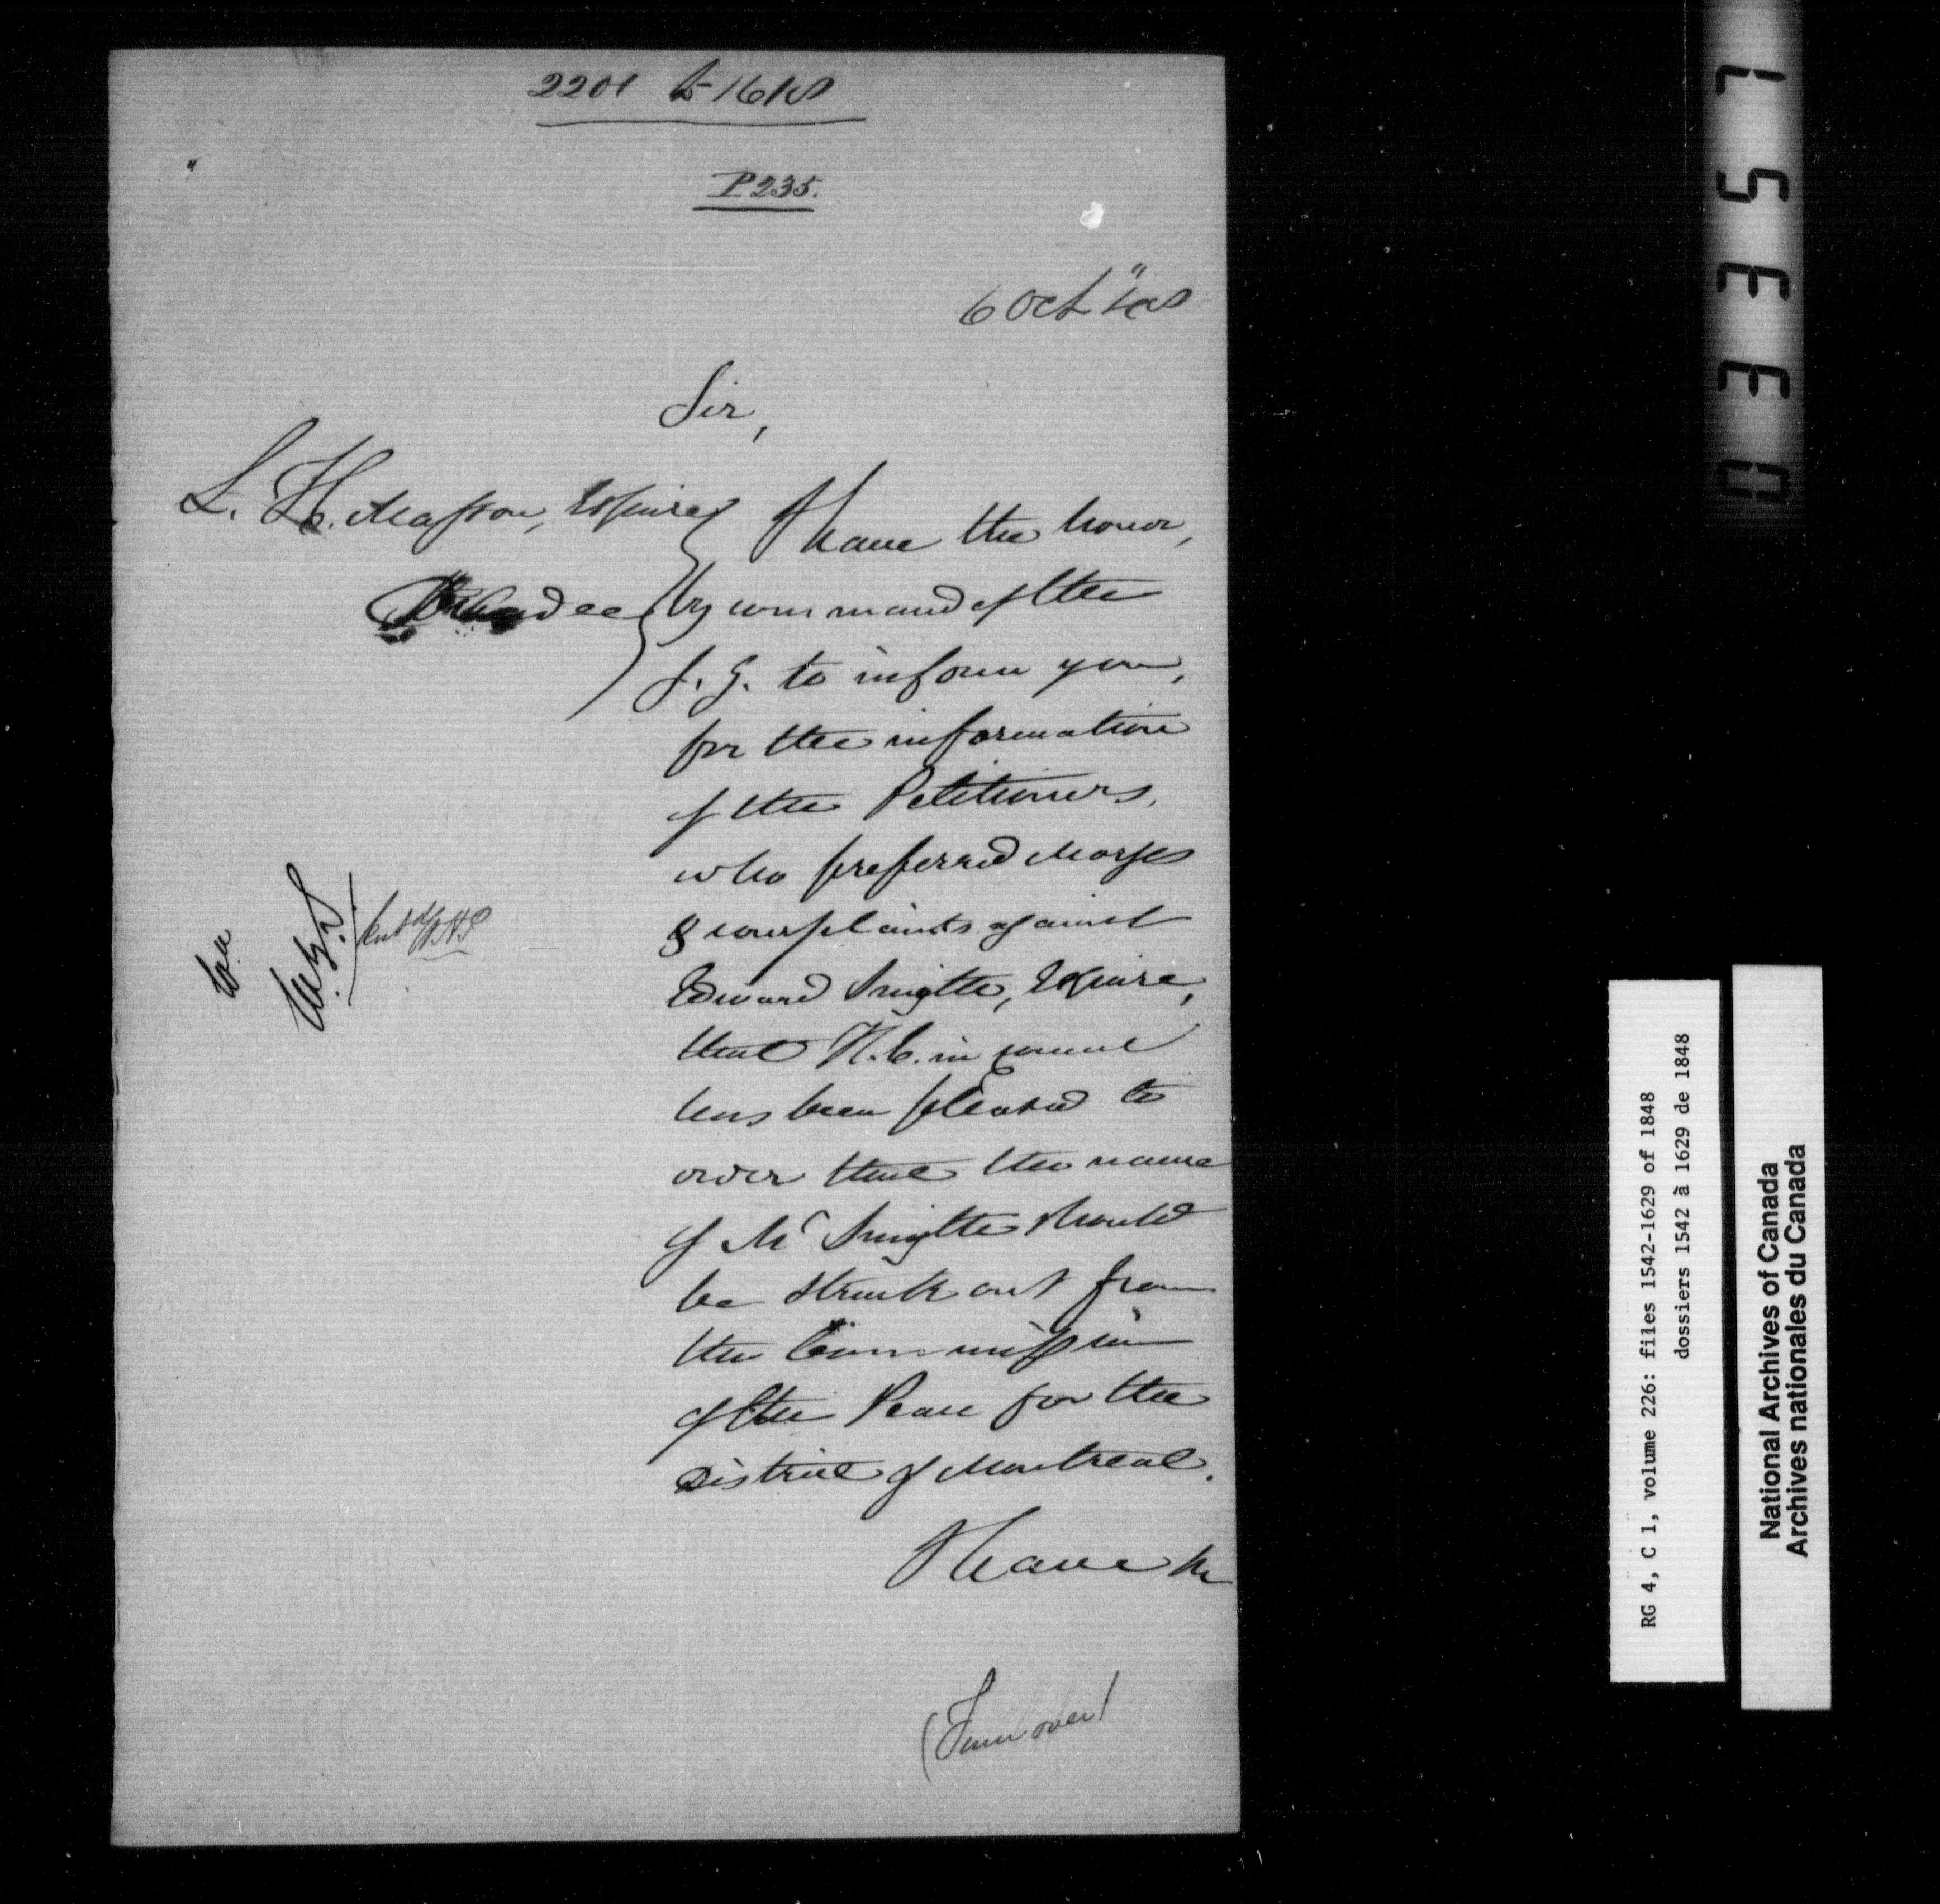 2201 to 1618
P 235.
6 Oct "48
Sir,
L. H. Masson, Esquire
Dundee
I have the honor,
by command of the
S. G. to inform you,
for the information
of the Petitioners,
who preferred charges
& complaints against
Edward Smythe, Esquire,
that H. E. in Council
has been pleased to
order that the name
of Mr Smythe should
be struck out from
the Commission
of the Peace for the
District of Montreal.
I have &c
(Turn over)
Entd
03357
RG 4, C 1, volume 226: files 1542-1629 of 1848
dossiers 1542 à 1629 de 1848
National Archives of Canada
Archives nationales du Canada